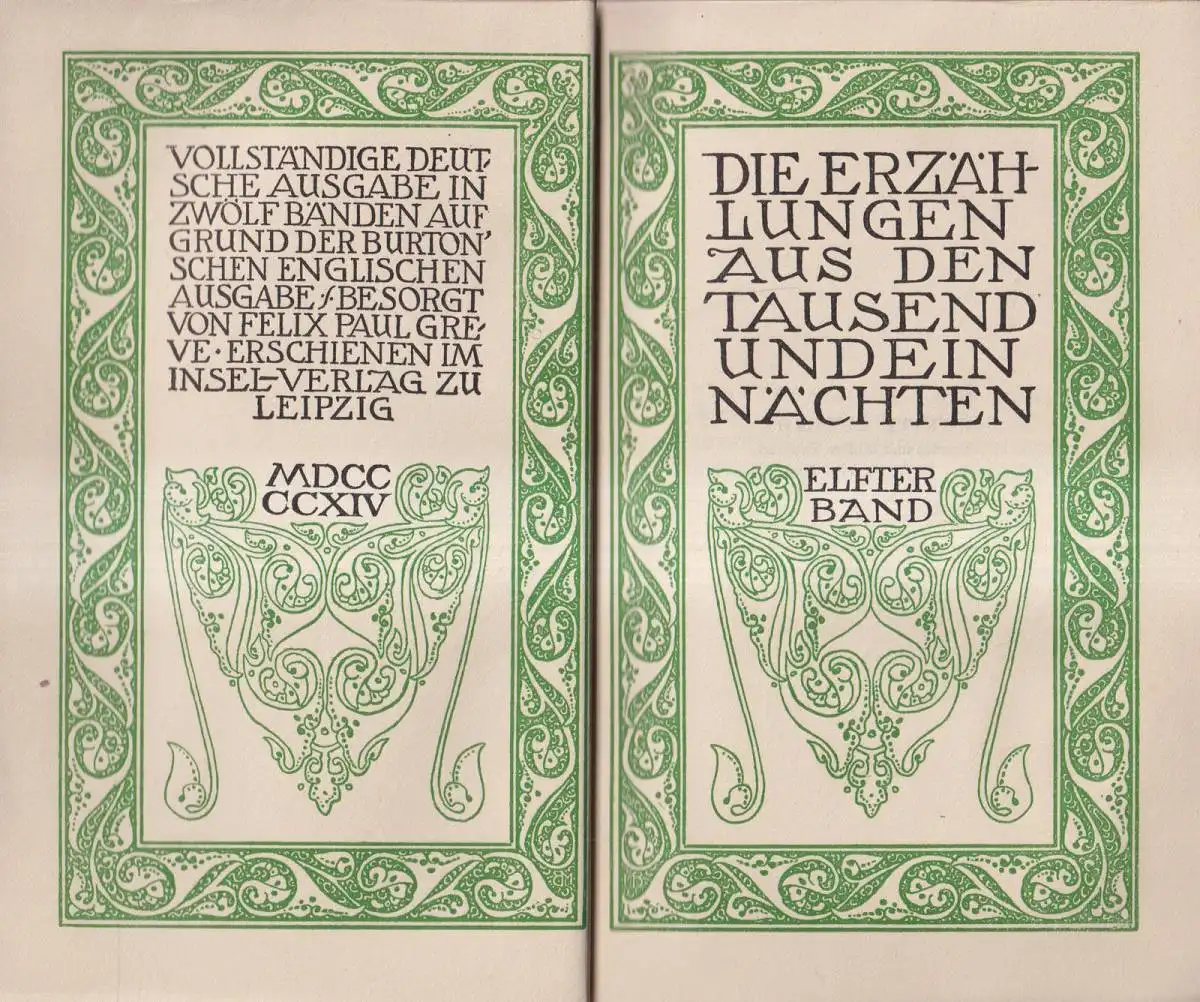 VOLLSTÄNDIGE DEUT-
SCHE AUSGABE IN
ZWÖLF BÄNDEN AUF
GRUND DER BURTON'
SCHEN ENGLISCHEN
AUSGABE / BESORGT
VON FELIX PAUL GRE-
VE · ERSCHIENEN IM
INSEL-VERLAG ZU
LEIPZIG
MDCC
CCXIV
DIE ERZÄH-
LUNGEN
AUS DEN
TAUSEND
UNDEIN
NÄCHTEN
ELFTER
BAND